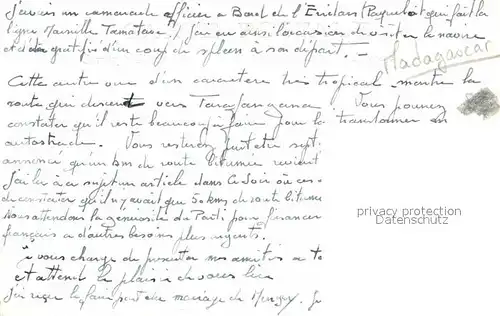 J'avais un camarade officier à Bord de l'Eridan (Paquebot qui fait la
ligne Marseille Tamatave). J'ai eu ainsi l'occasion de visiter le navire
et d'être gratifié d'un coup de spleen à son départ. -
Madagascar
Cette autre vue d'un caractère très tropical montre la
route qui descend vers Tarafangana. Vous pouvez
constater qu'il reste beaucoup à faire pour la transformer en
autostrade. Vous resterez peut être
qu'un km de route bitumée revient
J'ai lu à ce sujet un article dans Ce Soir où
de constater qu'il n'y avait que 50 kms de route bitumée
Nous attendons la générosité du Parti pour financer
français a d'autres besoins plus urgents.
vous charge de présenter mes amitiés à
et attend le plaisir de vous lire
J'ai reçu le faire part du mariage de
privacy protection
Datenschutz